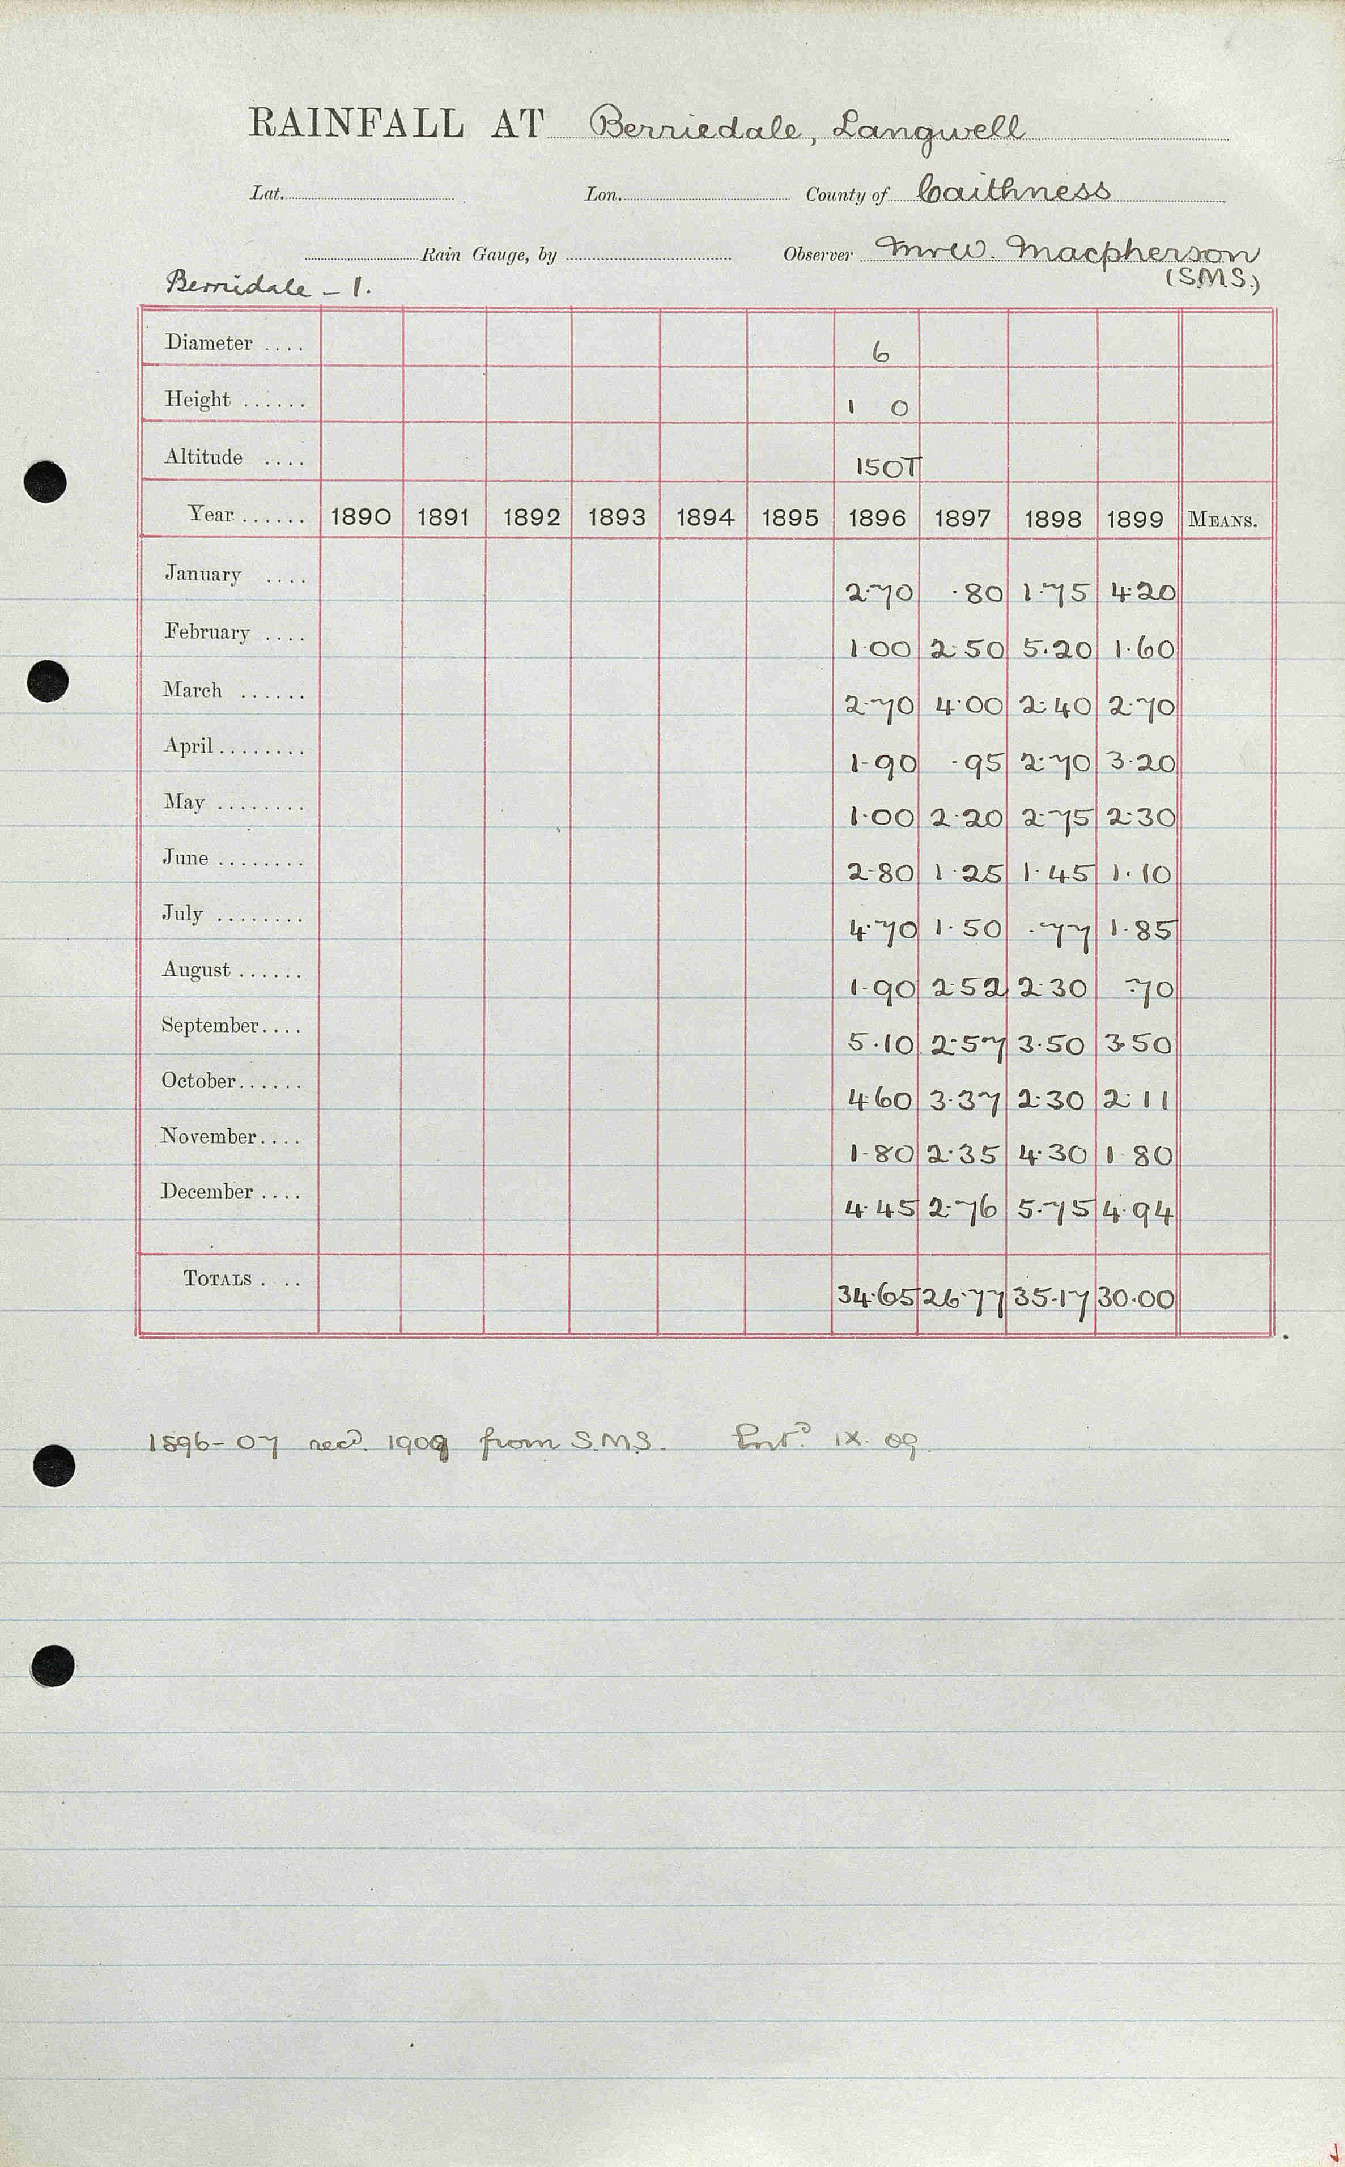 RAINFALL AT Berriedale, Langwell
Lat. Lon. County of Caithness
Rain Gauge, by Observer Mr W. Macpherson
Berridale - 1. (S.M.S.)
Diameter .... 6
Height ...... 1 0
Altitude .... 150T
Year ...... 1890 1891 1892 1893 1894 1895 1896 1897 1898 1899 MEANS.
January .... 2.70 .80 1.75 4.20
February .... 1.00 2.50 5.20 1.60
March ...... 2.70 4.00 2.40 2.70
April ........ 1.90 .95 2.70 3.20
May ........ 1.00 2.20 2.75 2.30
June ........ 2.80 1.25 1.45 1.10
July ........ 4.70 1.50 .77 1.85
August ...... 1.90 2.52 2.30 .70
September .... 5.10 2.57 3.50 3.50
October ...... 4.60 3.37 2.30 2.11
November .... 1.80 2.35 4.30 1.80
December .... 4.45 2.76 5.75 4.94
TOTALS . .. 34.65 26.77 35.17 30.00
1896-07 recd. 1909 from S.M.S. Entd. IX. 09.